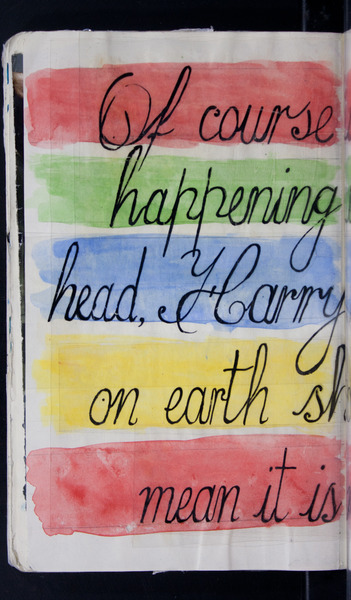 Of course
happening
head, Harry
on earth sh
mean it is